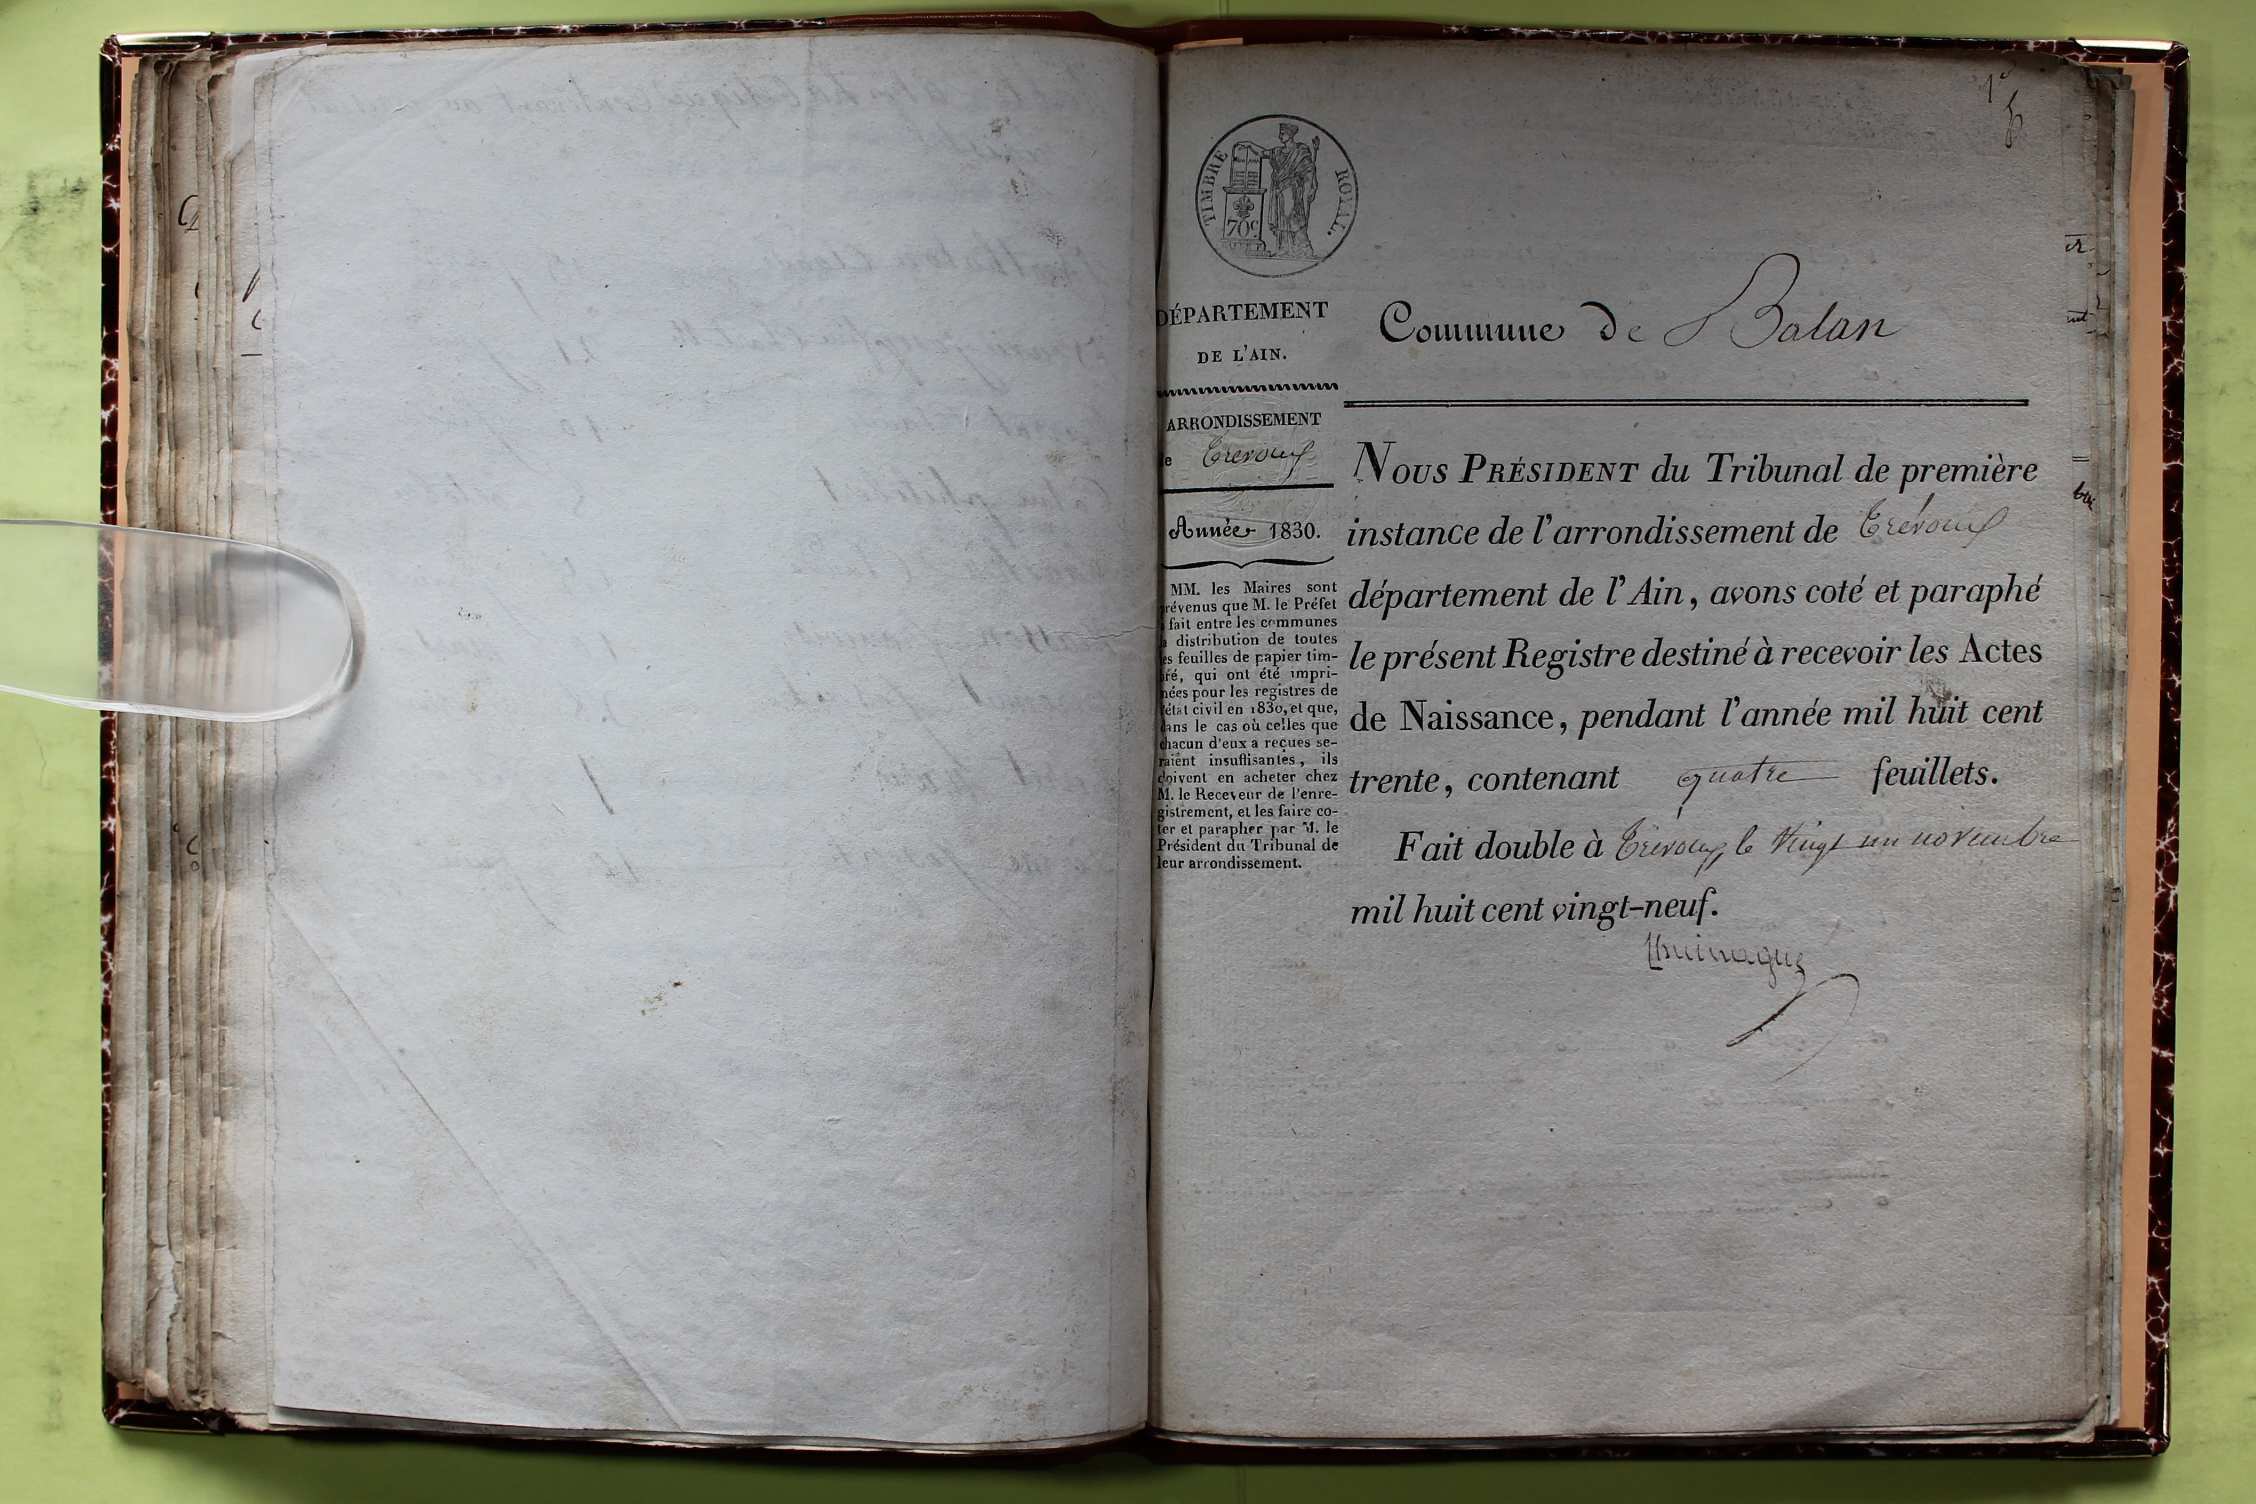 1er
TIMBRE ROYAL.
70c
DÉPARTEMENT
DE L'AIN.
Commune de Balan
ARRONDISSEMENT
de Trevoux
Année 1830.
MM. les Maires sont
prévenus que M. le Préfet
a fait entre les communes
la distribution de toutes
les feuilles de papier tim-
bré, qui ont été impri-
mées pour les registres de
l'état civil en 1830, et que,
dans le cas où celles que
chacun d'eux a reçues se-
raient insuffisantes, ils
doivent en acheter chez
M. le Receveur de l'enre-
gistrement, et les faire co-
ter et parapher par M. le
Président du Tribunal de
leur arrondissement.
NOUS PRÉSIDENT du Tribunal de première
instance de l'arrondissement de Trévoux
département de l'Ain, avons coté et paraphé
le présent Registre destiné à recevoir les Actes
de Naissance, pendant l'année mil huit cent
trente, contenant quatre feuillets.
Fait double à Trévoux, le vingt un novembre
mil huit cent vingt-neuf.